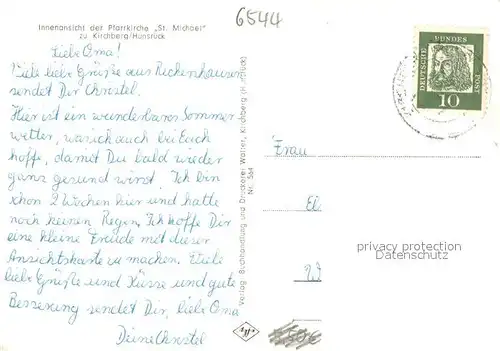 Innenansicht der Pfarrkirche "St. Michael"
zu Kirchberg/Hunsrück
6544
Liebe Oma!
Viele liebe Grüße aus Rickenhausen
sendet Dir Christel.
Hier ist ein wunderbares Sommer-
wetter, was ich auch bei Euch
hoffe, damit Du bald wieder
ganz gesund wirst. Ich bin
schon 2 Wochen hier und hatte
noch keinen Regen. Ich hoffe Dir
eine kleine Freude mit dieser
Ansichtskarte zu machen. Viele
liebe Grüße und Küsse und gute
Besserung sendet Dir, liebe Oma
Deine Christel
Verlag: Buchhandlung und Druckerei Walter, Kirchberg (Hunsrück)
Nr. 564
DEUTSCHE BUNDESPOST
10
Frau
El
privacy protection
Datenschutz